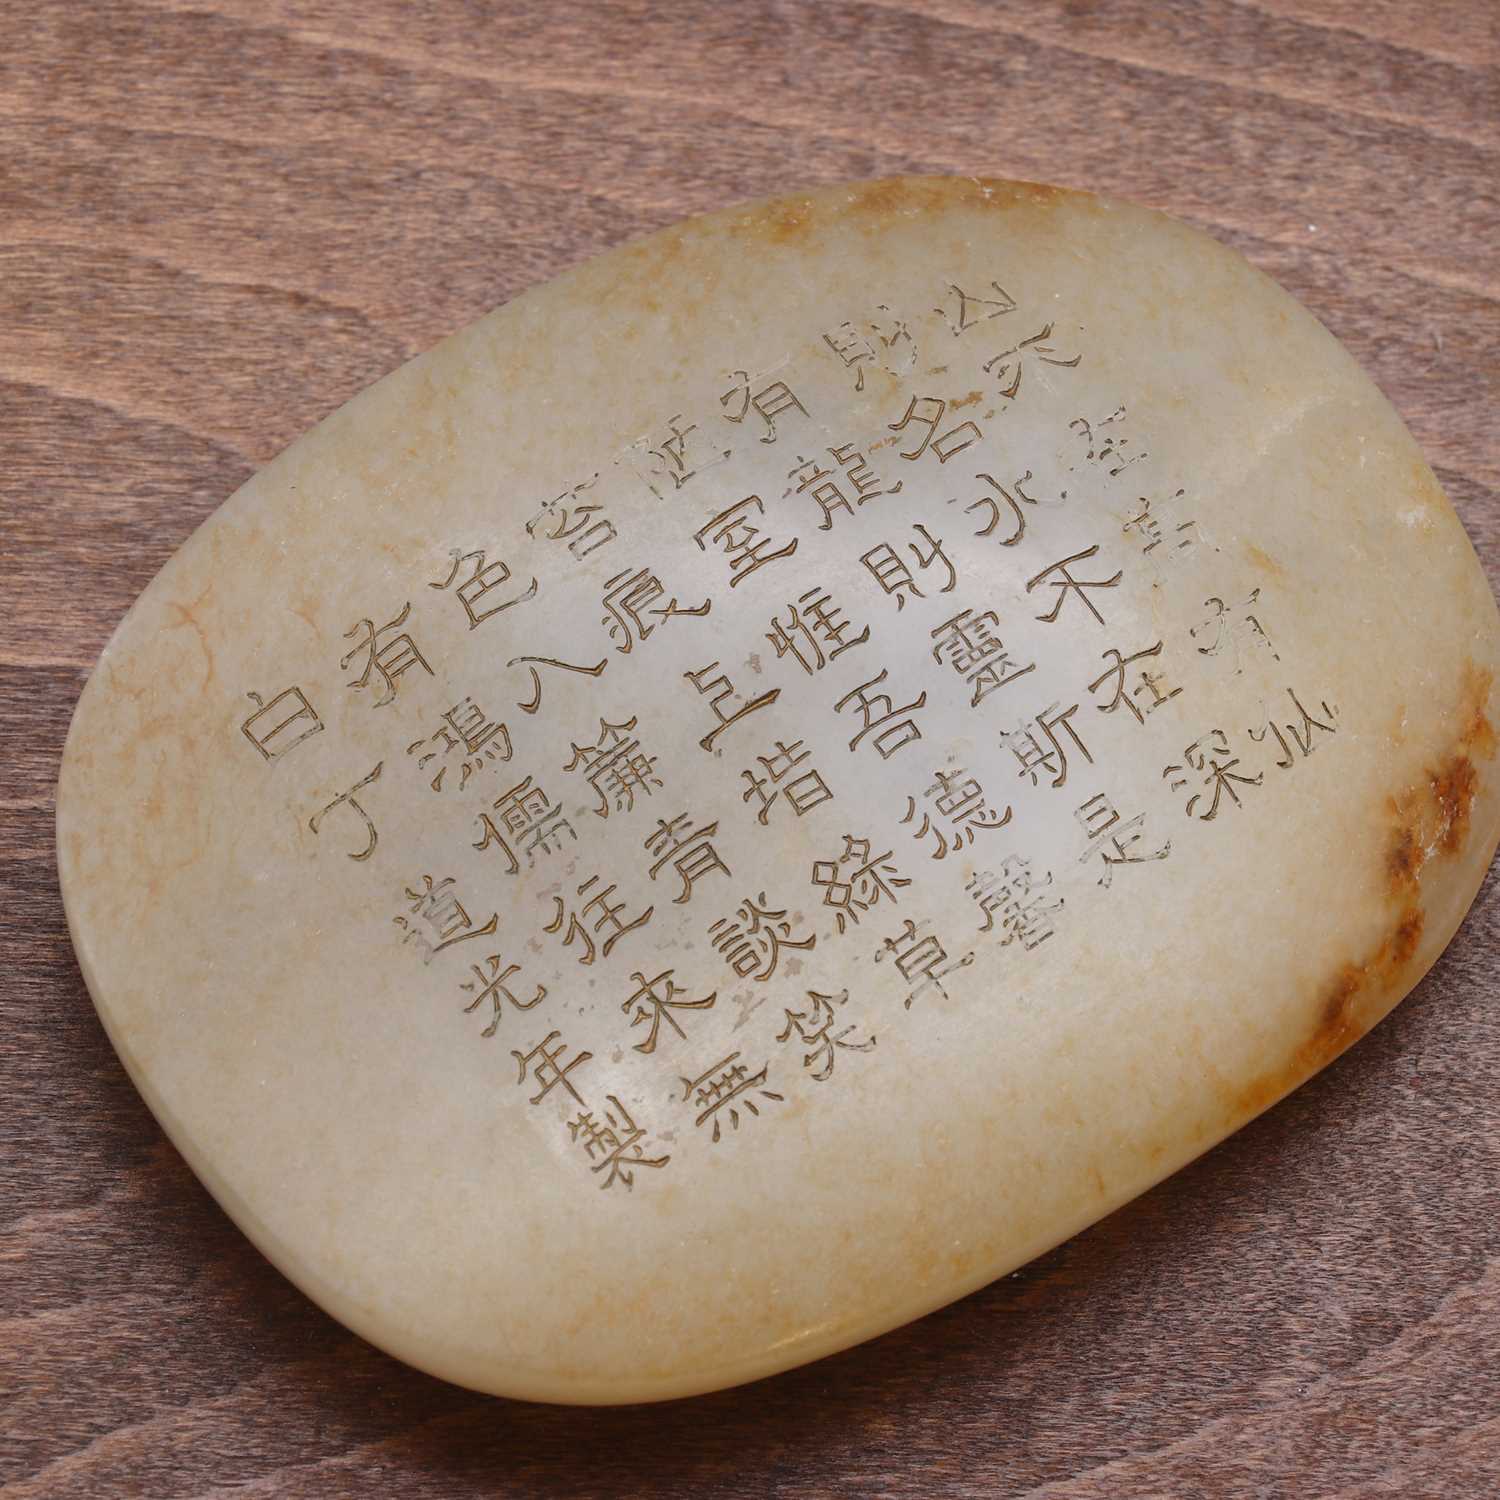 山不在高有仙
則名水不在深
有龍則靈斯是
陋室惟吾德馨
苔痕上堦綠草
色入簾青談笑
有鴻儒往來無
白丁
道光年製